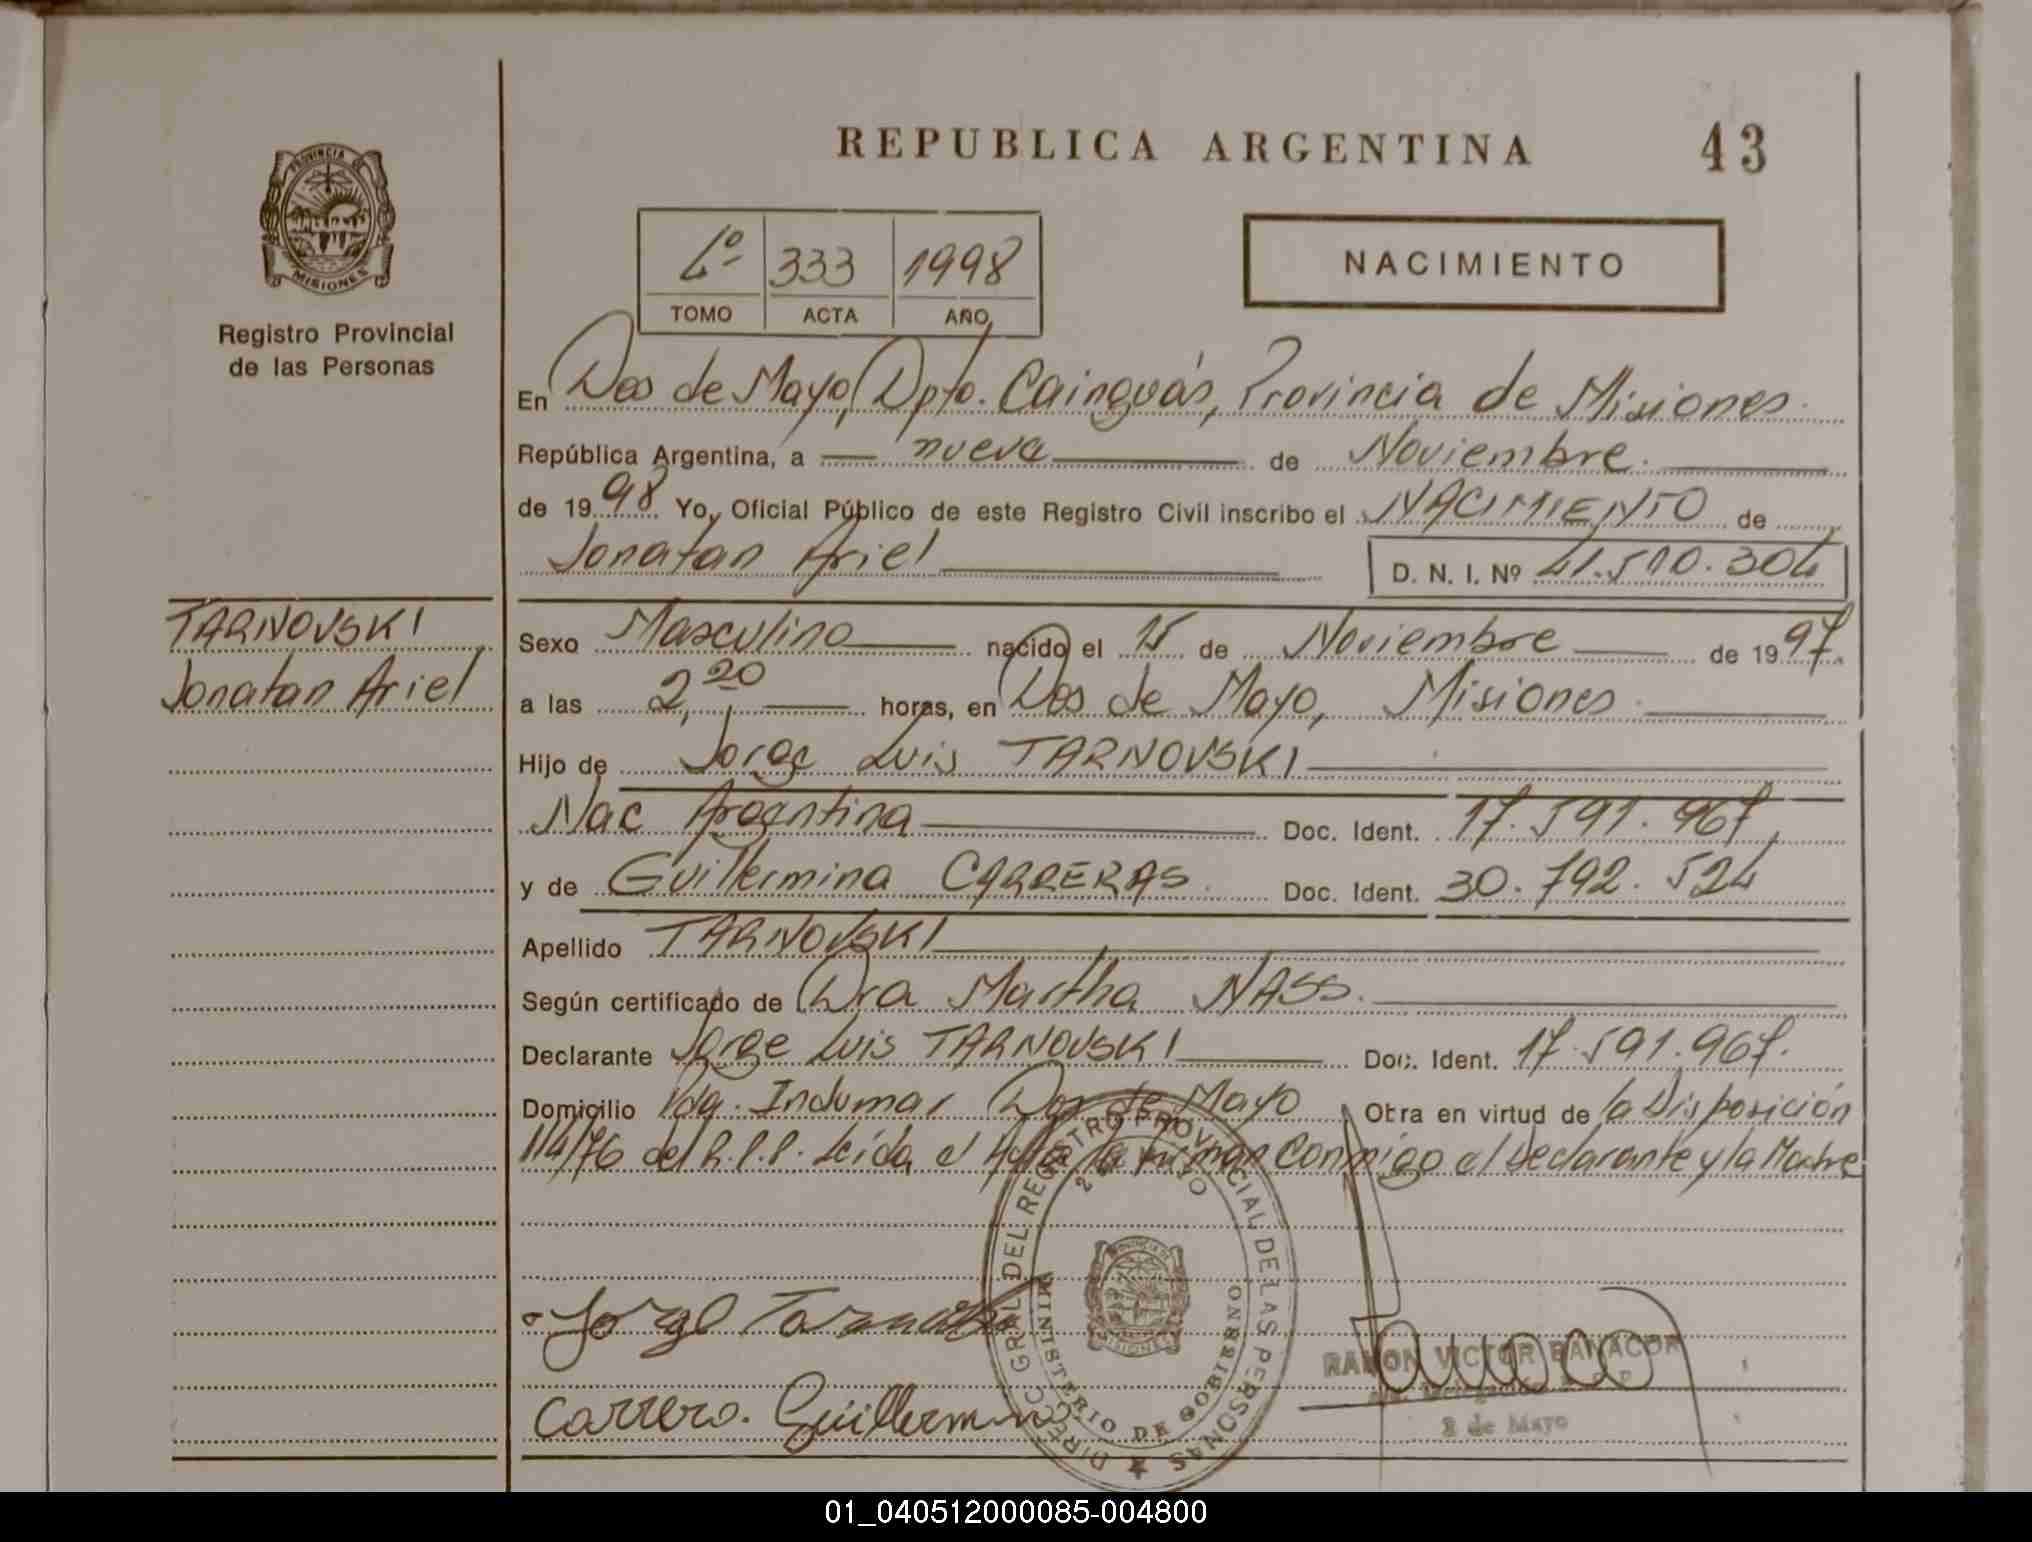 REPUBLICA ARGENTINA 43
PROVINCIA DE
MISIONES
Registro Provincial
de las Personas
4º 333 1998
TOMO ACTA AÑO
NACIMIENTO
En Dos de Mayo, Dpto. Cainguás, Provincia de Misiones.
República Argentina, a nueve de Noviembre.
de 1998 Yo, Oficial Público de este Registro Civil inscribo el NACIMIENTO de
Jonatan Ariel D. N. I. Nº 41.510.304
TARNOVSKI
Jonatan Ariel
Sexo Masculino nacido el 15 de Noviembre de 1997.
a las 2,20 horas, en Dos de Mayo, Misiones
Hijo de Jorge Luis TARNOVSKI
Nac Argentina Doc. Ident. 17.591.967,
y de Guillermina CARRERAS. Doc. Ident. 30.792.524
Apellido TARNOVSKI
Según certificado de Dra Martha NASS.
Declarante Jorge Luis TARNOVSKI Doc. Ident. 17.591.967.
Domicilio Pdq. Indumar Dos de Mayo Obra en virtud de la Disposición
114/76 del R.P.P. Leída el Acta la firman conmigo el Declarante y la Madre
DIRECC GRAL DEL REGISTRO PROVINCIAL DE LAS PERSONAS
2 DE MAYO
MINISTERIO DE GOBIERNO
PROVINCIA DE
MISIONES
Jorge
RAMON VICTOR
2 de Mayo
Carrera. Guillermin
01_040512000085-004800